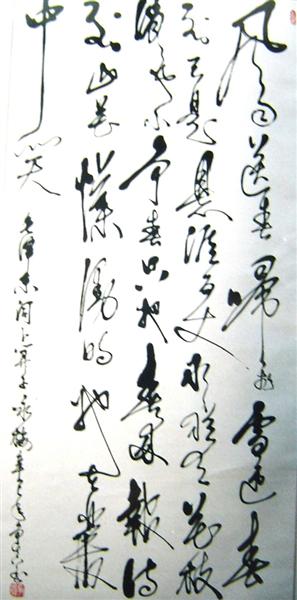 风雨送春歸飞雪迎春
到已是悬崖百丈冰犹有花枝
俏也不争春只把春来報待
到山花烂漫时她在丛
中笑
毛泽东词卜算子咏梅